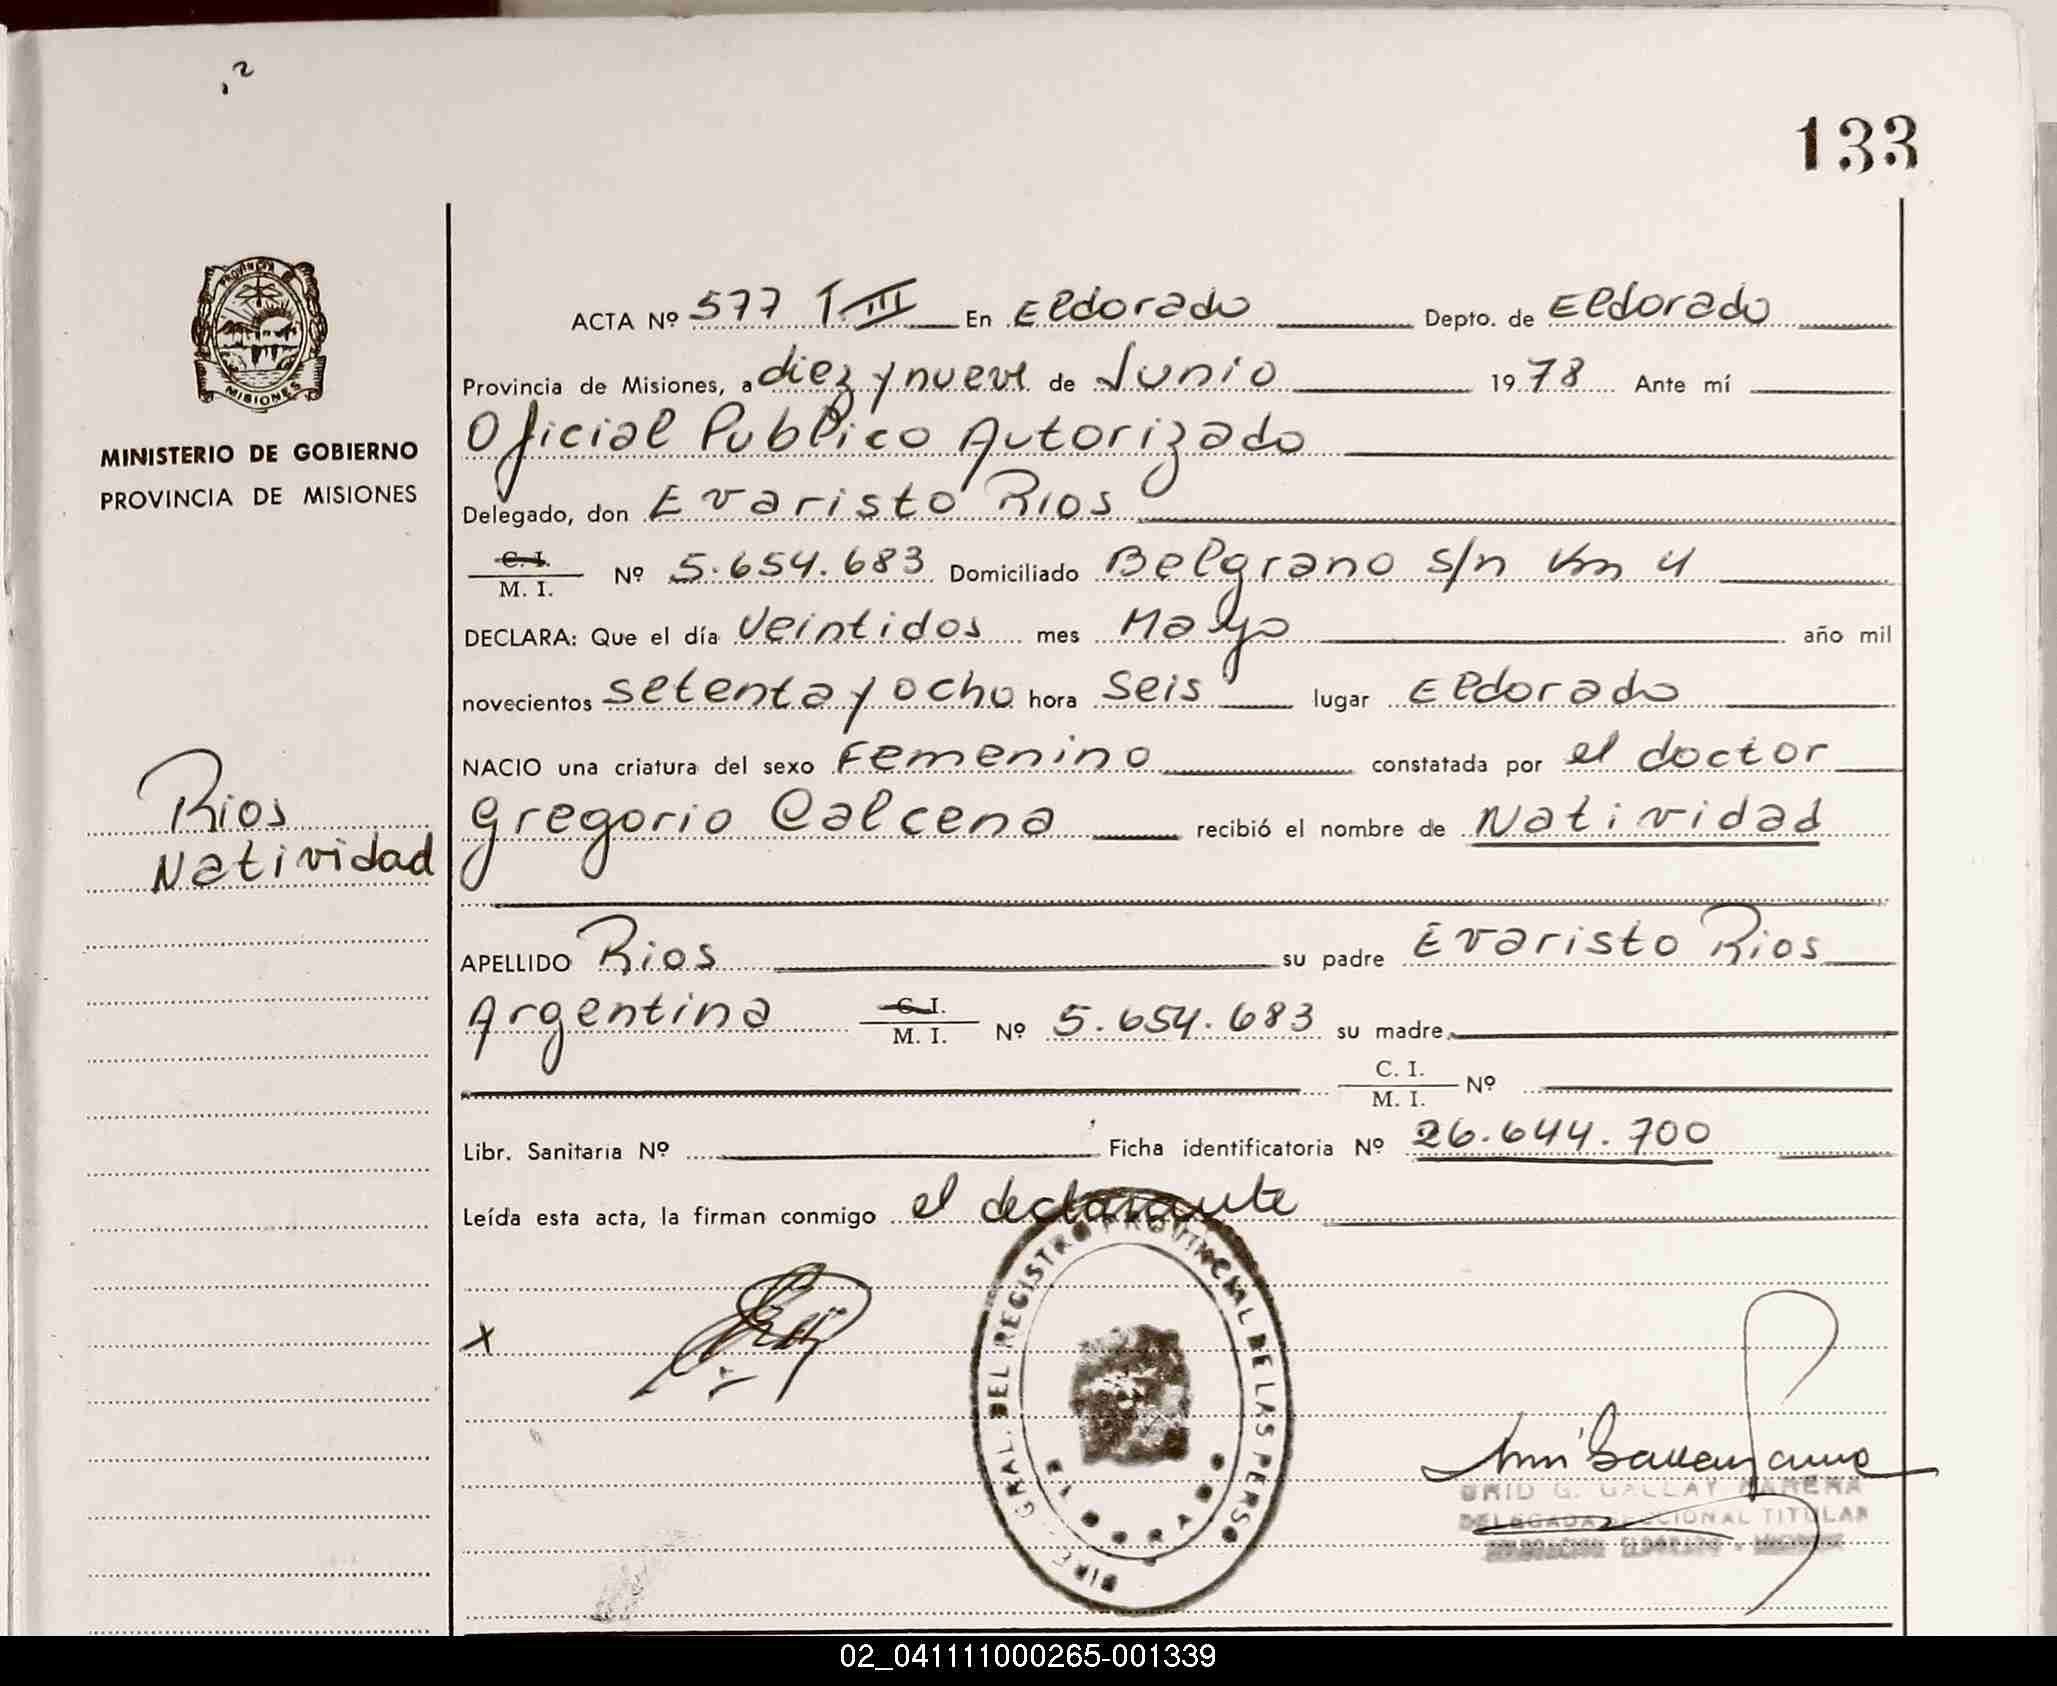 133
PROVINCIA DE
MISIONES
MINISTERIO DE GOBIERNO
PROVINCIA DE MISIONES
ACTA Nº 577 T III En Eldorado Depto. de Eldorado
Provincia de Misiones, a diez y nueve de Junio 1978 Ante mí
Oficial Publico Autorizado
Delegado, don Evaristo Rios
C. I.
M. I. Nº 5.654.683 Domiciliado Belgrano s/n Km 4
DECLARA: Que el día Veintidos mes Mayo año mil
novecientos setenta y ocho hora seis lugar Eldorado
NACIO una criatura del sexo Femenino constatada por el doctor
Gregorio Calcena recibió el nombre de Natividad
Rios
Natividad
APELLIDO Rios su padre Evaristo Rios
Argentina C. I.
M. I. Nº 5.654.683 su madre
C. I.
M. I. Nº
Libr. Sanitaria Nº Ficha identificatoria Nº 26.644.700
Leída esta acta, la firman conmigo el declarante
X
GRAL. DEL REGISTRO PROVINCIAL DE LAS PERS
ELDORADO
G. GALLAY
DELEGADA SECCIONAL TITULAR
02_041111000265-001339